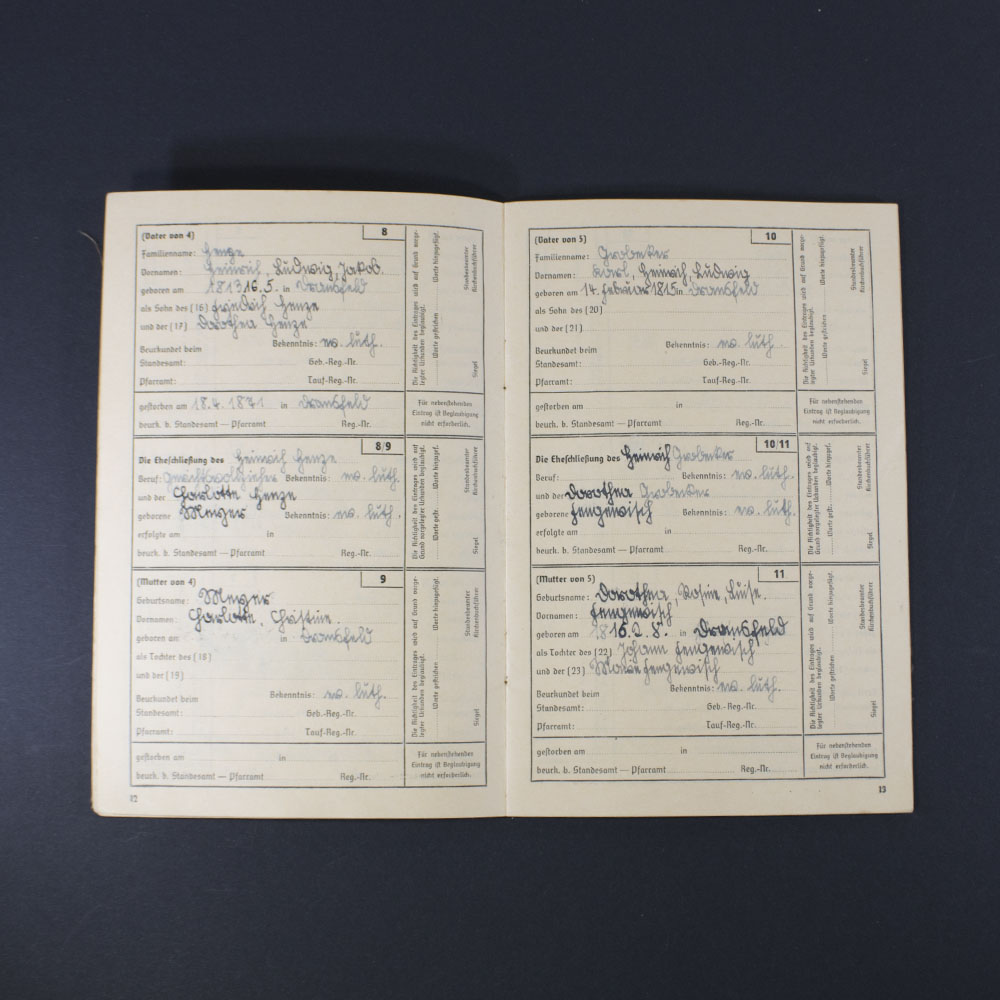 (Vater von 4) 8
Familienname: Henze
Vornamen: Heinrich, Ludwig, Jakob.
geboren am 1813 16.5. in Dransfeld
als Sohn des (16) Friedrich Henze
und der (17) Dorothea Henze
Bekenntnis: ev. luth.
Beurkundet beim
Standesamt: Geb.-Reg.-Nr.
Pfarramt: Tauf-Reg.-Nr.
Die Richtigkeit des Eintrages wird auf Grund vorge-
legter Urkunden beglaubigt.
Worte gestrichen Worte hinzugefügt.
Siegel Standesbeamter
Kirchenbuchführer
gestorben am 18.4.1871 in Dransfeld
beurk. b. Standesamt — Pfarramt Reg.-Nr.
Für nebenstehenden
Eintrag ist Beglaubigung
nicht erforderlich.
8/9
Die Eheschließung des Heinrich Henze
Beruf: Bekenntnis: ev. luth.
und der Charlotte Henze
geborene Meyer Bekenntnis: ev. luth.
erfolgte am in
beurk. b. Standesamt — Pfarramt Reg.-Nr.
Die Richtigkeit des Eintrages wird auf
Grund vorgelegter Urkunden beglaubigt.
Worte gestr. Worte hinzugef.
Siegel Standesbeamter
Kirchenbuchführer
(Mutter von 4) 9
Geburtsname: Meyer
Vornamen: Charlotte, Christine.
geboren am in Dransfeld
als Tochter des (18)
und der (19)
Bekenntnis: ev. luth.
Beurkundet beim
Standesamt: Geb.-Reg.-Nr.
Pfarramt: Tauf-Reg.-Nr.
Die Richtigkeit des Eintrages wird auf Grund vorge-
legter Urkunden beglaubigt.
Worte gestrichen Worte hinzugefügt.
Siegel Standesbeamter
Kirchenbuchführer
gestorben am in
beurk. b. Standesamt — Pfarramt Reg.-Nr.
Für nebenstehenden
Eintrag ist Beglaubigung
nicht erforderlich.
12
(Vater von 5) 10
Familienname: Grobecker
Vornamen: Karl, Heinrich, Ludwig
geboren am 14. Februar 1815 in Dransfeld
als Sohn des (20)
und der (21)
Bekenntnis: ev. luth.
Beurkundet beim
Standesamt: Geb.-Reg.-Nr.
Pfarramt: Tauf-Reg.-Nr.
Die Richtigkeit des Eintrages wird auf Grund vorge-
legter Urkunden beglaubigt.
Worte gestrichen Worte hinzugefügt.
Siegel Standesbeamter
Kirchenbuchführer
gestorben am in
beurk. b. Standesamt — Pfarramt Reg.-Nr.
Für nebenstehenden
Eintrag ist Beglaubigung
nicht erforderlich.
10/11
Die Eheschließung des Heinrich Grobecker
Beruf: Bekenntnis: ev. luth.
und der Dorothea Grobecker
geborene Jengewisch Bekenntnis: ev. luth.
erfolgte am in
beurk. b. Standesamt — Pfarramt Reg.-Nr.
Die Richtigkeit des Eintrages wird auf
Grund vorgelegter Urkunden beglaubigt.
Worte gestr. Worte hinzugef.
Siegel Standesbeamter
Kirchenbuchführer
(Mutter von 5) 11
Geburtsname: Dorothea, Rosine, Luise.
Vornamen: Jengewisch
geboren am 1816.2.8. in Dransfeld
als Tochter des (22) Johann Jengewisch
und der (23) Marie Jengewisch
Bekenntnis: ev. luth.
Beurkundet beim
Standesamt: Geb.-Reg.-Nr.
Pfarramt: Tauf-Reg.-Nr.
Die Richtigkeit des Eintrages wird auf Grund vorge-
legter Urkunden beglaubigt.
Worte gestrichen Worte hinzugefügt.
Siegel Standesbeamter
Kirchenbuchführer
gestorben am in
beurk. b. Standesamt — Pfarramt Reg.-Nr.
Für nebenstehenden
Eintrag ist Beglaubigung
nicht erforderlich.
13